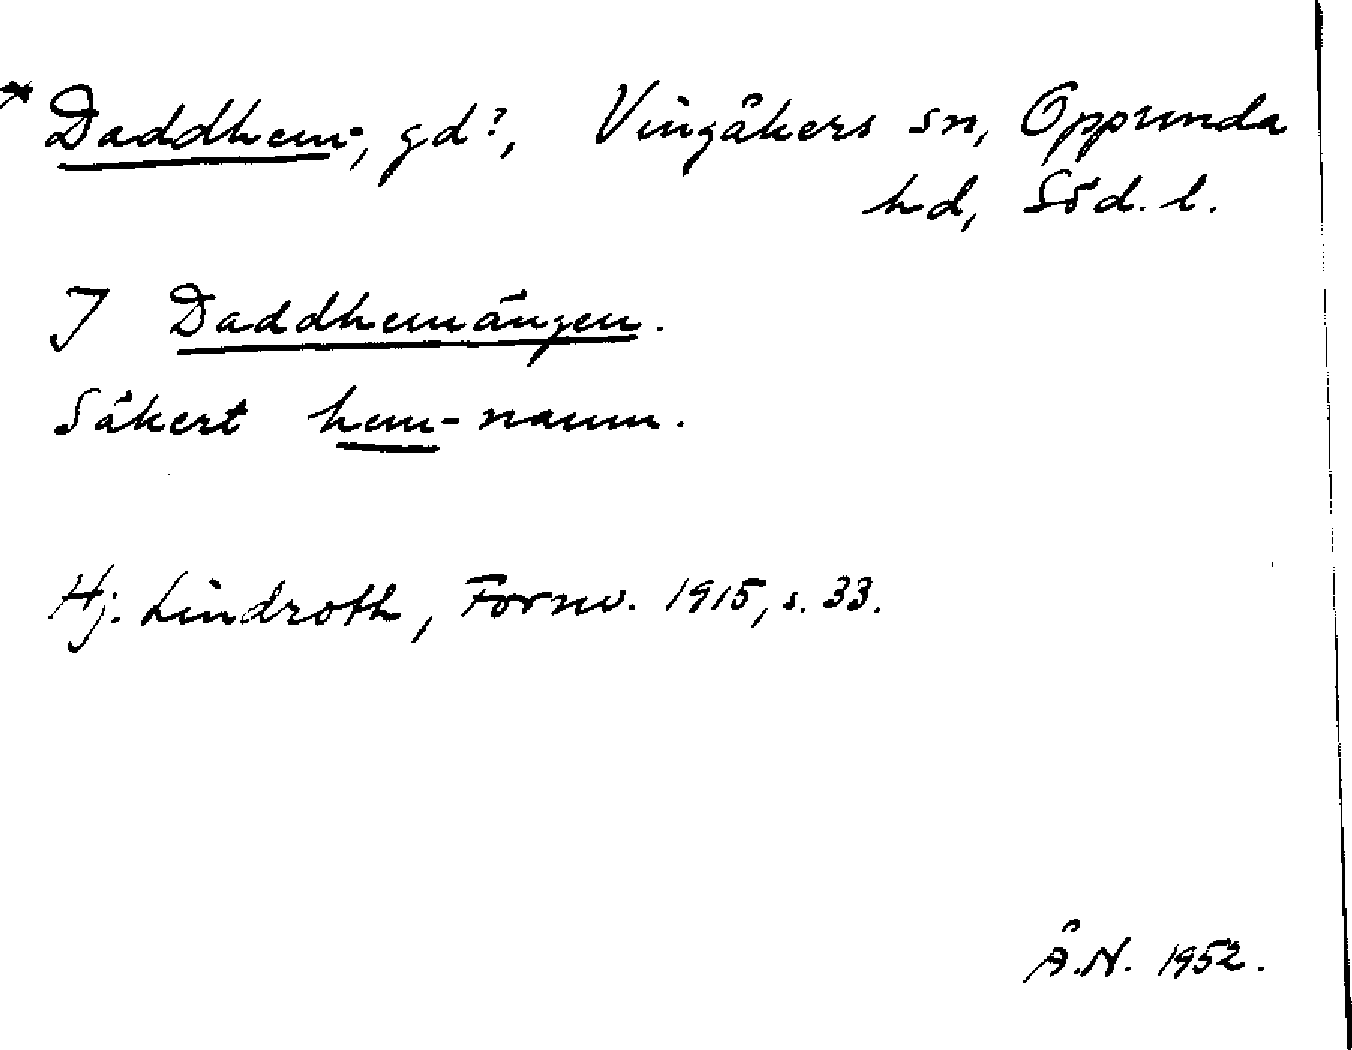 * Daddhem-, gd?, Vingåkers sn, Oppunda
hd, Söd. l.
I Daddhemängen.
Säkert hem-namn.
Hj. Lindroth, Fornv. 1915, s. 33.
Å.N. 1952.